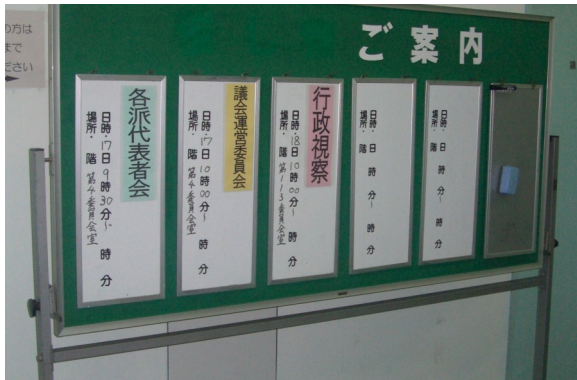 の方は
まで
ださい
ご案内
各派代表者会
日時・17日9時30分~ 時 分
場所・ 階 第4委員会室
議会運営委員会
日時・17日10時00分~ 時 分
場所・ 階 第4委員会室
行政視察
日時・18日10時00分~ 時 分
場所・ 階 第1・3委員会室
日時・ 日 時 分~ 時 分
場所・ 階
日時・ 日 時 分~ 時 分
場所・ 階